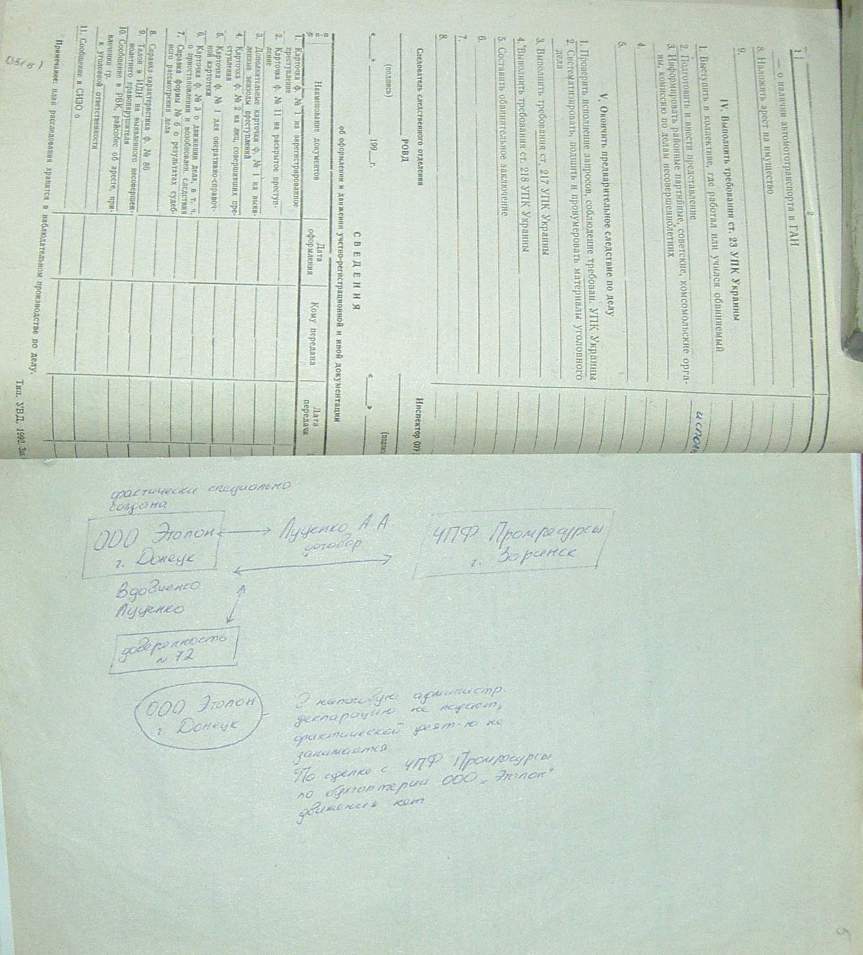 2
— о наличии автомототранспорта в ГАИ
8. Наложить арест на имущество
9.
IV. Выполнить требования ст. 23 УПК Украины
1. Выступить в коллективе, где работал или учился обвиняемый
2. Подготовить и внести представление
3. Информировать районные партийные, советские, комсомольские орга-
ны, комиссию по делам несовершеннолетних
4.
5.
V. Окончить предварительное следствие по делу
1. Проверить исполнение запросов, соблюдение требован. УПК Украины
2. Систематизировать, подшить и пронумеровать материалы уголовного
дела
3. Выполнить требования ст. 217 УПК Украины
4. Выполнить требования ст. 218 УПК Украины
5. Составить обвинительное заключение
6.
7.
8.
Следователь следственного отделения
РОВД
(подпись)
« » 199 г.
Инспектор
« »
СВЕДЕНИЯ
об оформлении и движении учетно-регистрационной и иной документации
Наименование документов
Дата оформления
Кому передана
Дата передачи
1. Карточка ф. № 1 на зарегистрированное
преступление
2. Карточка ф. № 11 на раскрытое преступ-
ление
3. Дополнительные карточки ф. № 1 на выяв-
ленные эпизоды преступлений
4. Карточка ф. № 2 на лиц, совершивших пре-
ступления
5. Карточка ф. № 1 для оперативно-справоч-
ной картотеки
6. Карточка ф. № 3 о движении дела, в т. ч.
о приостановлении и возобновлен. следствия
7. Справка формы № 6 о результатах судеб-
ного рассмотрения дела
8. Справка-характеристика ф. № 86
9. Талон в ИДН на выявленного несовершен-
нолетнего правонарушителя
10. Сообщение в РВК, райсобес об аресте, при-
влечении гр.
к уголовной ответственности
11. Сообщение в СИЗО о
Примечание: план расследования хранится в наблюдательном производстве по делу.
Тип. УВД. 1992.
фактически специально
создана
ООО Эталон
г. Донецк
Луценко А.А.
договор
ЧПФ Промресурсы
г. Зоринск
Вдовиенко
Луценко
доверенность
n 72
ООО Эталон
г. Донецк
налоговую администр.
декларацию не подают,
фактической деят-ю не
занимается
По сделке с ЧПФ Промресурсы
по бухгалтерии ООО „Эталон"
движения нет